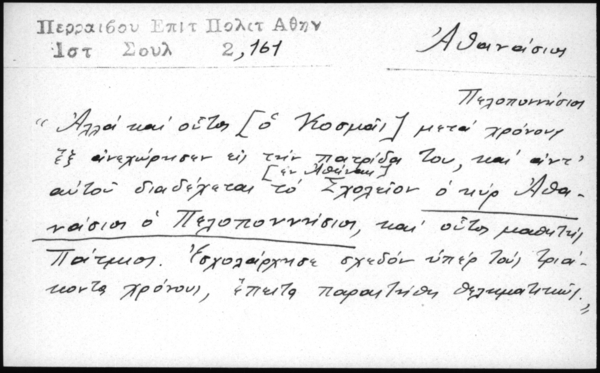 Περραιβου Επιτ Πολετ Αθην
Ιστ Σουλ 2,161
Ἀθανάσιος
Πελοποννήσιος
"Ἀλλά καί οὗτος [ὁ Κοσμᾶς] μετά χρόνους
ἕξ ἀνεχώρησεν εἰς τήν πατρίδα του, καί ἀντ'
αὐτοῦ διαδέχεται [ἐν Ἀθήναις] τό Σχολεῖον ὁ κύρ Ἀθα-
νάσιος ὁ Πελοποννήσιος, καί οὗτος μαθητής
Πάτμιος. Ἐσχολάρχησε σχεδόν ὑπέρ τούς τριά-
κοντα χρόνους, ἔπειτα παραιτήθη θεληματικῶς."